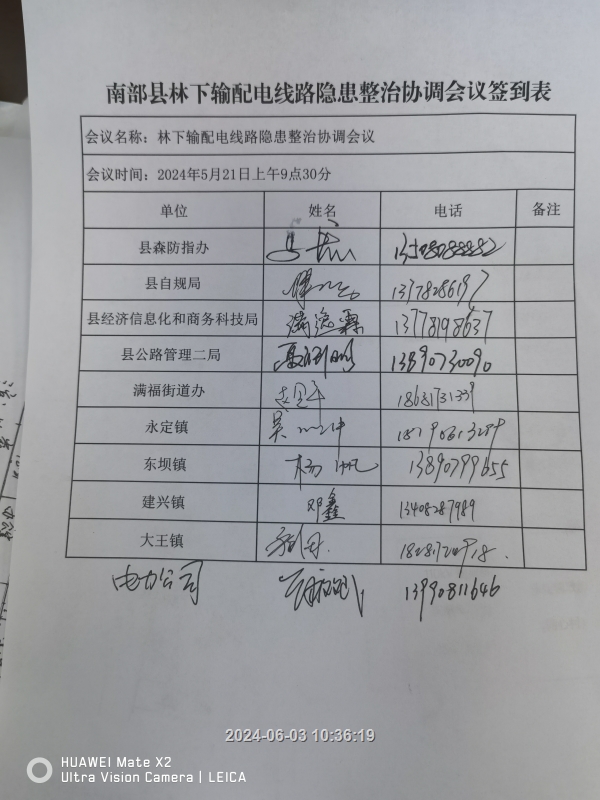 南部县林下输配电线路隐患整治协调会议签到表
会议名称：林下输配电线路隐患整治协调会议
会议时间：2024年5月21日上午9点30分
单位 姓名 电话 备注
县森防指办 13508088882
县自规局
县经济信息化和商务科技局 13778198637
县公路管理二局 13890730090
满福街道办 18681731339
永定镇
东坝镇 杨帆 13890799655
建兴镇 邓鑫 13408287989
大王镇
电力公司 13990811646
2024-06-03 10:36:19
HUAWEI Mate X2
Ultra Vision Camera | LEICA